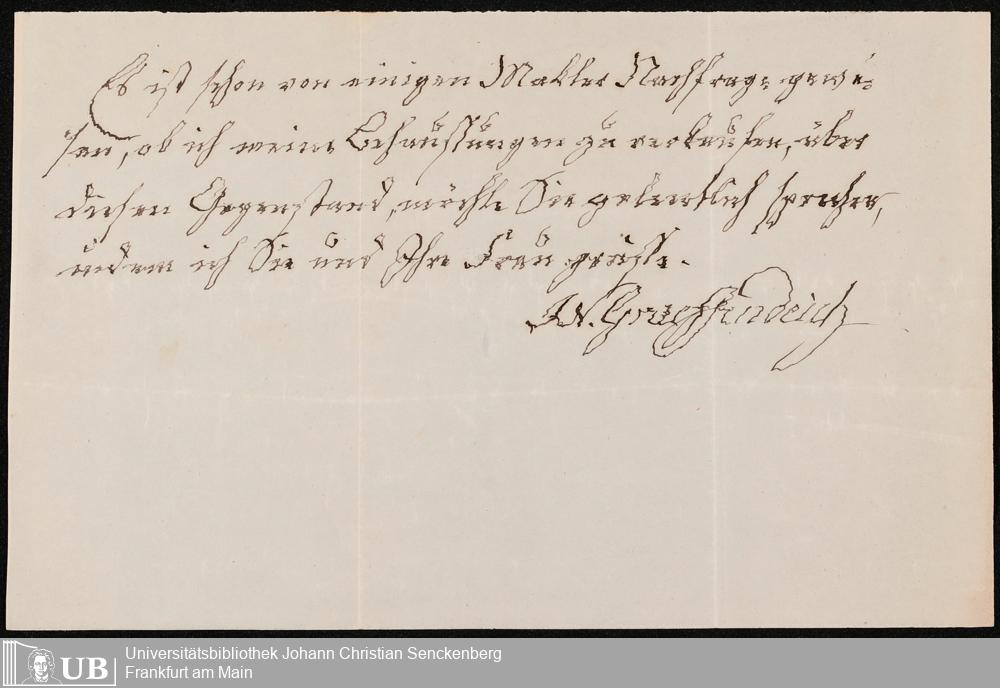 Es ist schon von einigen Makler Nachfrage gewe=
sen, ob ich meine Behaussungen zu verkaufen, über
diesen Gegenstand, möchte Sie gelentlich sprechen,
indem ich Sie und Ihre Frau grüsse.
UB
Universitätsbibliothek Johann Christian Senckenberg
Frankfurt am Main